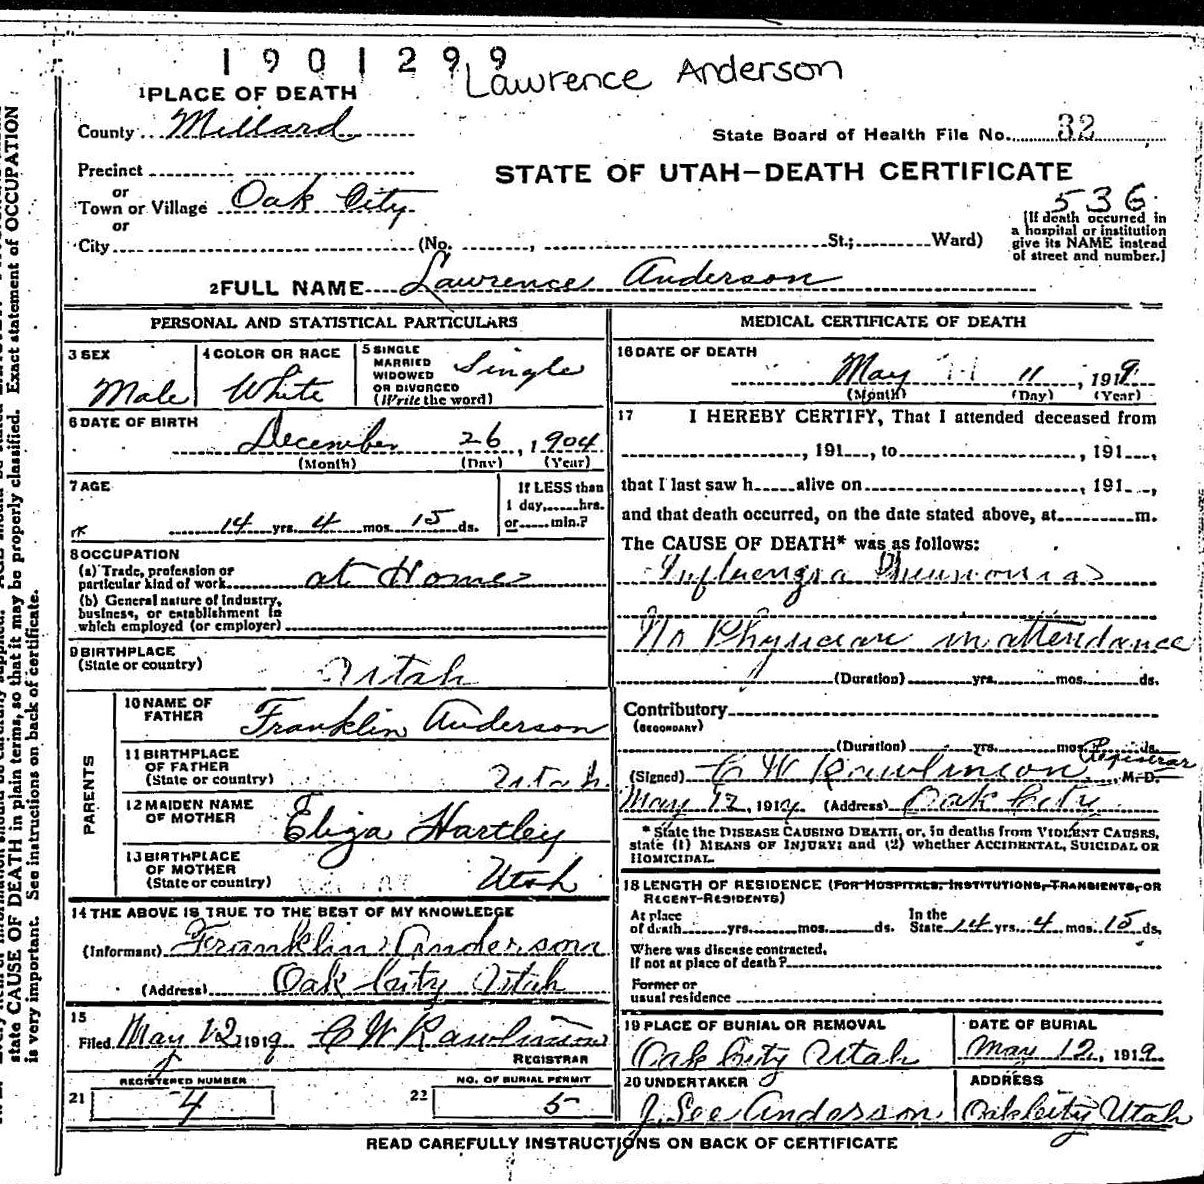 1901299
Lawrence Anderson
1 PLACE OF DEATH
County Millard
State Board of Health File No. 32
Precinct
STATE OF UTAH—DEATH CERTIFICATE
or
Town or Village Oak City
536
or
City (No. , St.; Ward)
[If death occurred in
a hospital or institution
give its NAME instead
of street and number.]
2 FULL NAME Lawrence Anderson
PERSONAL AND STATISTICAL PARTICULARS
3 SEX
Male
4 COLOR OR RACE
White
5 SINGLE
MARRIED
WIDOWED
OR DIVORCED
(Write the word)
Single
6 DATE OF BIRTH
December 26, 1904
(Month) (Day) (Year)
7 AGE
14 yrs. 4 mos. 15 ds.
If LESS than
1 day, hrs.
or min.?
8 OCCUPATION
(a) Trade, profession or
particular kind of work at Home
(b) General nature of industry,
business, or establishment in
which employed (or employer)
9 BIRTHPLACE
(State or country)
Utah
PARENTS
10 NAME OF
FATHER
Franklin Anderson
11 BIRTHPLACE
OF FATHER
(State or country)
Utah
12 MAIDEN NAME
OF MOTHER
Eliza Hartley
13 BIRTHPLACE
OF MOTHER
(State or country)
Utah
14 THE ABOVE IS TRUE TO THE BEST OF MY KNOWLEDGE
(Informant) Franklin Anderson
(Address) Oak City Utah
15
Filed May 12 1919 C W Rawlinson
REGISTRAR
REGISTERED NUMBER
21 4
NO. OF BURIAL PERMIT
22 5
MEDICAL CERTIFICATE OF DEATH
16 DATE OF DEATH
May 11, 1919
(Month) (Day) (Year)
17 I HEREBY CERTIFY, That I attended deceased from
, 191 , to , 191 ,
that I last saw h alive on , 191 ,
and that death occurred, on the date stated above, at m.
The CAUSE OF DEATH* was as follows:
Influenza Pneumonia
No Physician in attendance
(Duration) yrs. mos. ds.
Contributory
(SECONDARY)
(Duration) yrs. mos. ds.
Registrar
(Signed) C W Rawlinson, M. D.
May 12, 1919 (Address) Oak City
* State the DISEASE CAUSING DEATH, or, in deaths from VIOLENT CAUSES,
state (1) MEANS OF INJURY; and (2) whether ACCIDENTAL, SUICIDAL OR
HOMICIDAL.
18 LENGTH OF RESIDENCE (FOR HOSPITALS, INSTITUTIONS, TRANSIENTS, OR
RECENT RESIDENTS)
At place
of death yrs. mos. ds.
In the
State 14 yrs. 4 mos. 15 ds.
Where was disease contracted,
If not at place of death?
Former or
usual residence
19 PLACE OF BURIAL OR REMOVAL
Oak City Utah
DATE OF BURIAL
May 12, 1919
20 UNDERTAKER
J. Lee Anderson
ADDRESS
Oak City Utah
READ CAREFULLY INSTRUCTIONS ON BACK OF CERTIFICATE
state CAUSE OF DEATH in plain terms, so that it may be properly classified. Exact statement of OCCUPATION
is very important. See instructions on back of certificate.